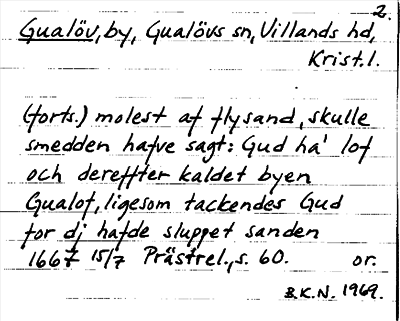 2.
Gualöv, by, Gualövs sn, Villands hd,
Krist. l.
(forts.) molest af flysand, skulle
smedden hafve sagt: Gud ha' lof
och dereffter kaldet byen
Gualof, ligesom tackendes Gud
for dj hafde sluppet sanden
1667 15/7 Prästrel., s. 60. or.
B.K.N. 1969.